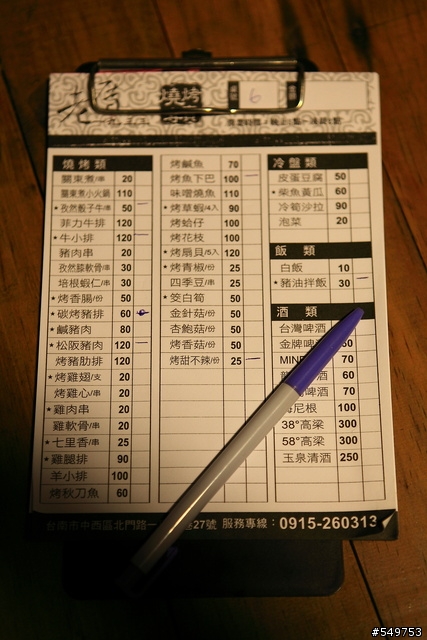 燒烤
6
燒烤類
關東煮/串 20
關東煮小火鍋 110
*孜然骰子牛/串 50
菲力牛排 120
*牛小排 120
豬肉串 20
孜然膝軟骨/串 30
培根蝦仁/串 30
*烤香腸/份 50
*碳烤豬排 60
*鹹豬肉 80
*松阪豬肉 120
烤豬肋排 120
*烤雞翅/支 20
烤雞心/串 20
*雞肉串 20
雞軟骨/串 20
*七里香/串 25
*雞腿排 90
羊小排 100
烤秋刀魚 60
烤鹹魚 70
*烤魚下巴 100
味噌燒魚 110
*烤草蝦/4入 90
烤蛤仔 100
烤花枝 100
*烤扇貝/5入 120
*烤青椒/份 25
四季豆/串 25
*筊白筍 50
金針菇/份 50
杏鮑菇/份 50
烤香菇/份 50
烤甜不辣/份 25
冷盤類
皮蛋豆腐 50
*柴魚黃瓜 60
冷筍沙拉 90
泡菜 20
飯 類
白飯 10
*豬油拌飯 30
酒 類
台灣啤酒
金牌啤酒
MINE 70
60
啤酒 70
海尼根 100
38°高粱 300
58°高粱 300
玉泉清酒 250
台南市中西區北門路一 巷27號 服務專線：0915-260313
#549753